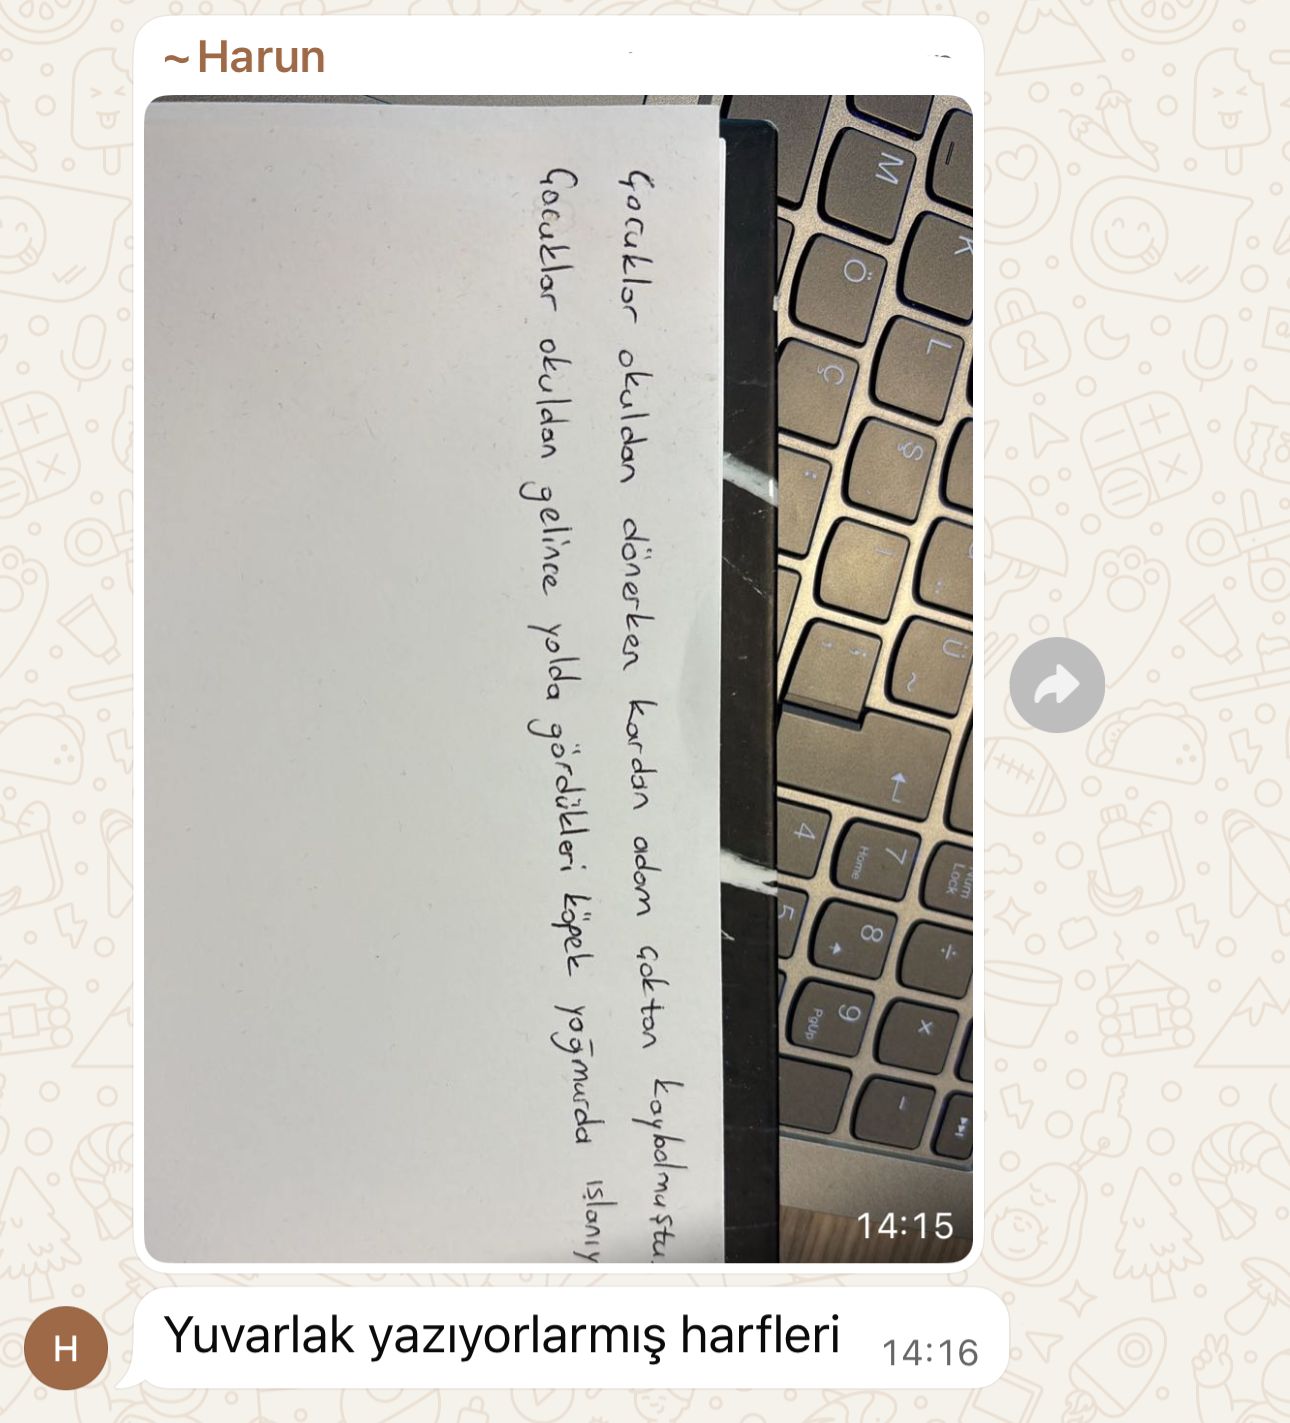 ~ Harun
Çocuklar okuldan dönerken kardan adam çoktan kaybolmuştu.
Çocuklar okuldan gelince yolda gördükleri köpek yağmurda ıslanıy
M
K
Ö
L
Ç
Ş
:
.
İ
Ü
~
;
,
4
7
Home
Num
Lock
5
8
÷
9
PgUp
x
-
14:15
H
Yuvarlak yazıyorlarmış harfleri
14:16